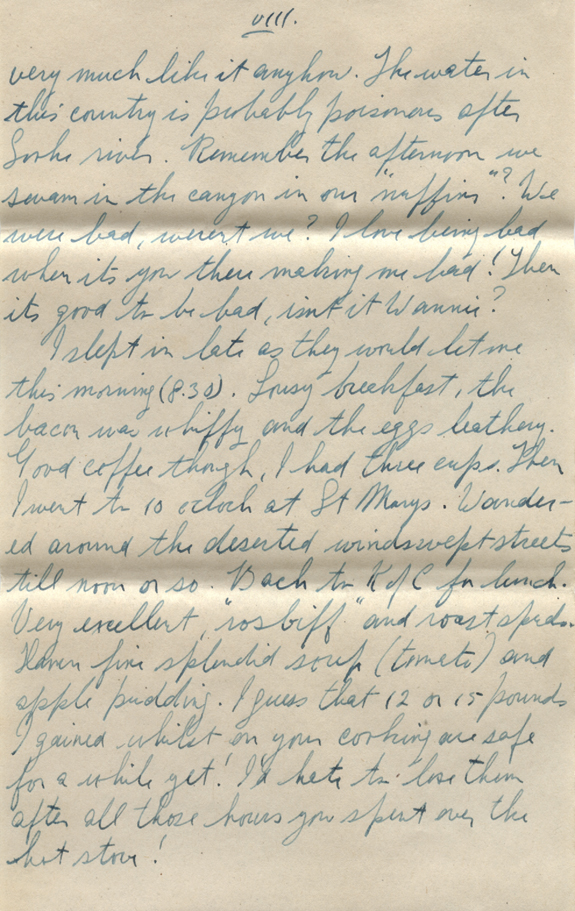 VIII.
very much like it anyhow. The water in
this country is probably poisonous after
Sooke river. Remember the afternoon we
swam in the canyon in our "nuffins"? We
were bad, weren't we? I love being bad
when its you there making me bad! Then
its good to be bad, isn't it Wannie?
I slept in late as they would let me
this morning (8.30). Lousy breakfast, the
bacon was whiffy and the eggs leathery.
Good coffee though, I had three cups. Then
I went to 10 oclock at St Marys. Wander-
ed around the deserted windswept streets
till noon or so. Back to K of C for lunch.
Very excellent, "rosbiff" and roast spuds.
fine splendid soup (tomato) and
apple pudding. I guess that 12 or 15 pounds
I gained whilst on your cooking are safe
for a while yet! I'd hate to lose them
after all those hours you spent over the
hot stove!